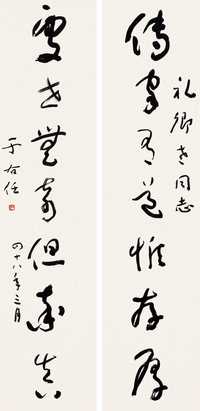 傳家有道惟存厚
禮卿老同志
處世無奇但率真
于右任
四十八年三月